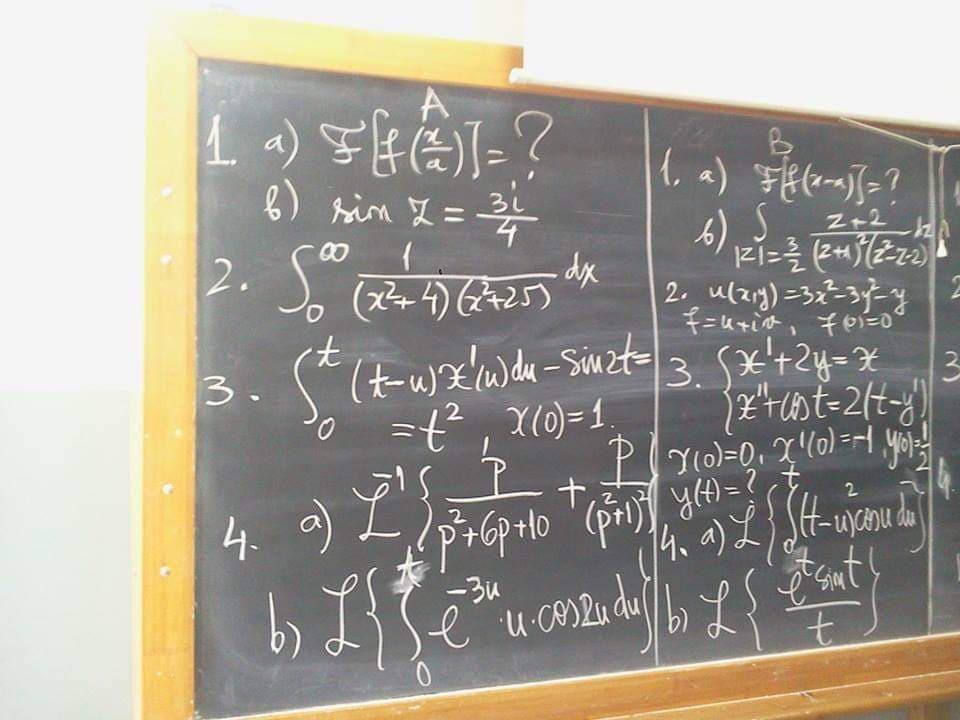 A
1. a) F[f(x/a)]=?
b) sin z = 3i/4
2. ∫₀^∞ 1/((x²+4)(x²+25)) dx
3. ∫₀^t (t-u)x'(u)du - sin2t=
=t², x(0)=1.
4. a) L⁻¹{p/(p²+6p+10) + p/(p²+1)²}
b) L{∫₀^t e^(-3u)·u·cos2u du}
B
1. a) F[f(x-a)]=?
b) ∫_{|z|=3/2} (z+2)/((z+1)²(z²-z-2)) dz
2. u(x,y)=3x²-3y²-y
f=u+iv, f(0)=0
3. { x'+2y=x
{ x''+cos t=2(t-y')
x(0)=0, x'(0)=-1, y(0)=1/2
y(t)=?
4. a) L{∫₀^t (t-u)²cosu du}
b) L{e^t sint/t}
3